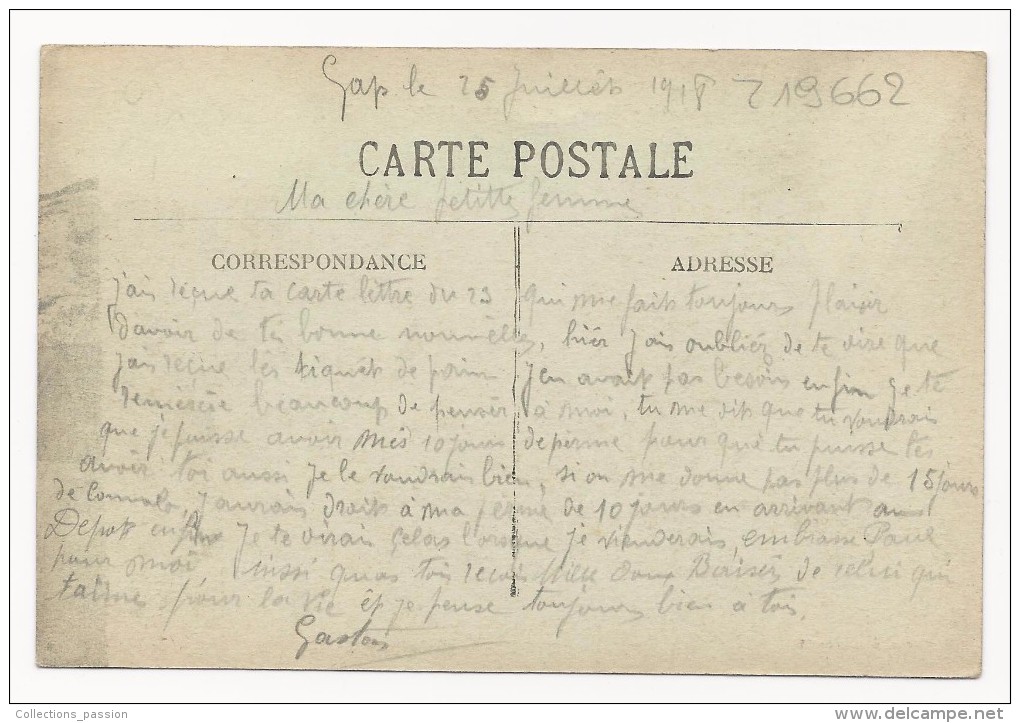 Gap le 25 Juillets 1918 Z19662
CARTE POSTALE
Ma chère petitte femme
CORRESPONDANCE
ADRESSE
J'ais reçue ta carte lettre du 23 qui me faits toujours plaisir
davoir de tes bonne nouvelles, hiér J'ais oubliéz de te dire que
J'ais reçue les tiquets de pain J'en avait pas besoin enfin je te
remércie beaucoup de pensér à moi, tu me dit que tu voudrais
que je puisse avoir més 10 jours de perme pour que tu puisse tes
avoir toi aussi Je le voudrais bien, si on me donne pas plus de 15 jours
de Convalo, J'aurais droits à ma pérme de 10 jours en arrivant aus
Depots enfin Je te dirais çelas l'orsque je vienderais, embrasse Paul
pour moi ainsi quas tois reçois Mille Doux Bérisér de celui qui
t'aimes pour la vie et je pense toujours bien à tois,
Gaston
Collections_passion
www.delcampe.net